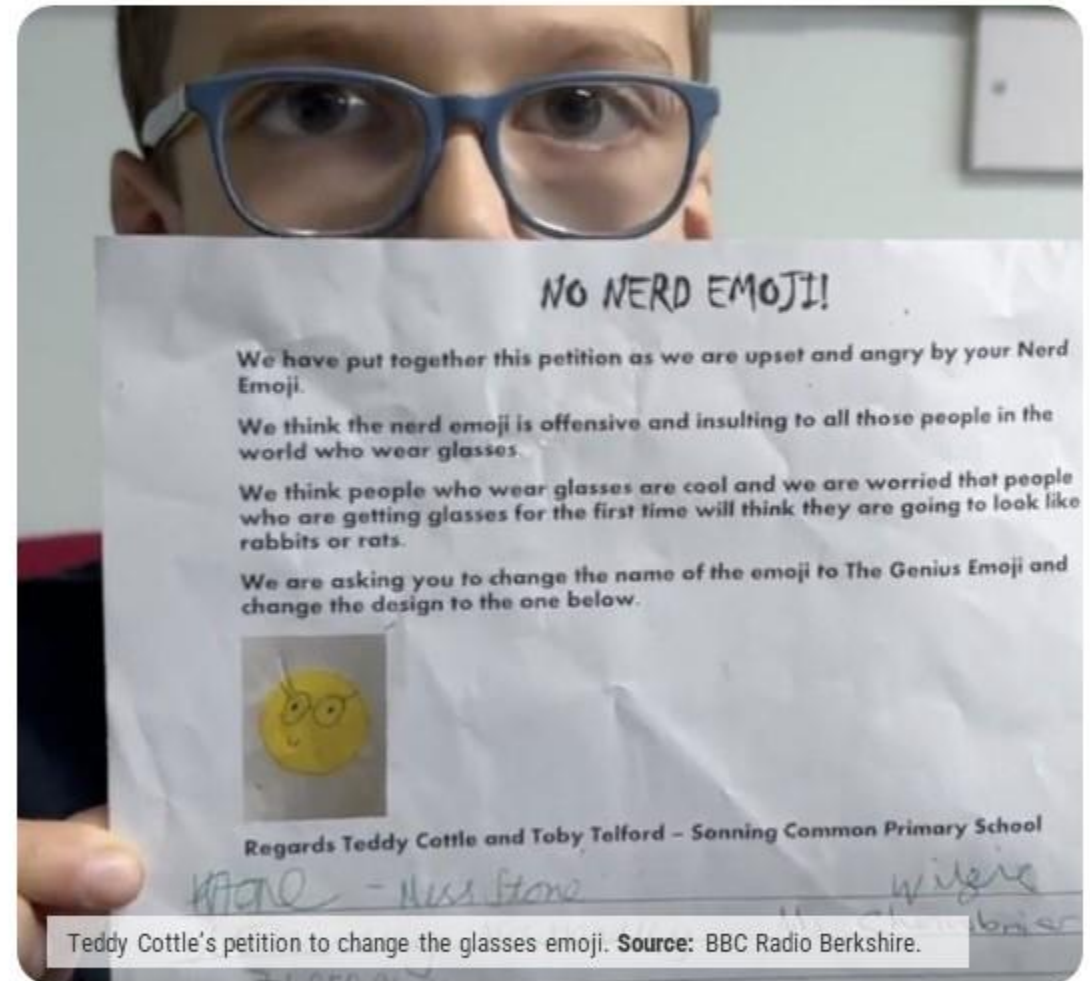 NO NERD EMOJI!
We have put together this petition as we are upset and angry by your Nerd
Emoji.
We think the nerd emoji is offensive and insulting to all those people in the
world who wear glasses.
We think people who wear glasses are cool and we are worried that people
who are getting glasses for the first time will think they are going to look like
rabbits or rats.
We are asking you to change the name of the emoji to The Genius Emoji and
change the design to the one below.
Regards Teddy Cottle and Toby Telford – Sonning Common Primary School
- Miss Stone
Teddy Cottle's petition to change the glasses emoji. Source: BBC Radio Berkshire.